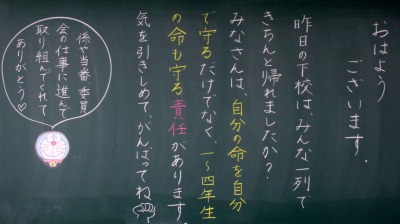 おはよう
ございます.
昨日の下校は、みんな一列で
きちんと帰れましたか？
みなさんは、自分の命を自分
で守るだけでなく、一〜四年生
の命も守る責任があります.
気を引きしめて、がんばってね
係や当番 委員
会の仕事に進んで
取り組んでくれて
ありがとう♡